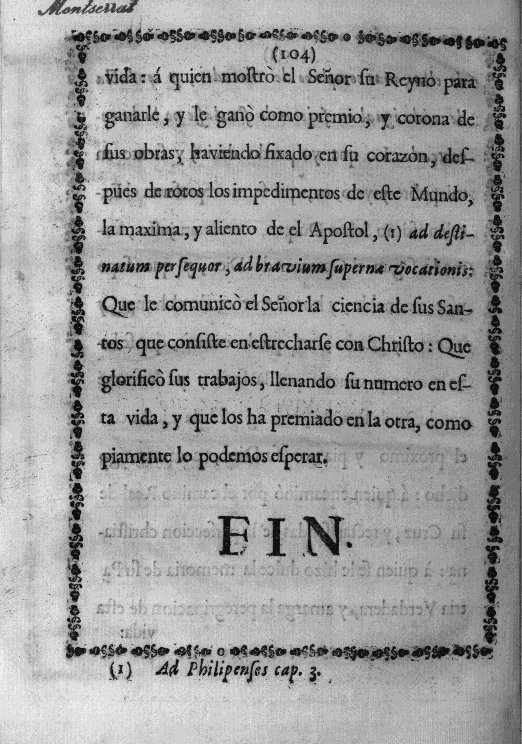 Montserrat
(104)
vida: á quien mostrò el Señor su Reyno para
ganarle, y le ganò como premio, y corona de
sus obras, haviendo fixado en su corazon, des-
pues de rotos los impedimentos de este Mundo,
la maxima, y aliento de el Apostol, (1) ad desti-
natum persequor, ad bravium superna vocationis:
Que le comunicò el Señor la ciencia de sus San-
tos que consiste en estrecharse con Christo: Que
glorificò sus trabajos, llenando su numero en es-
ta vida, y que los ha premiado en la otra, como
piamente lo podemos esperar.
FIN.
(1) Ad Philipenses cap. 3.